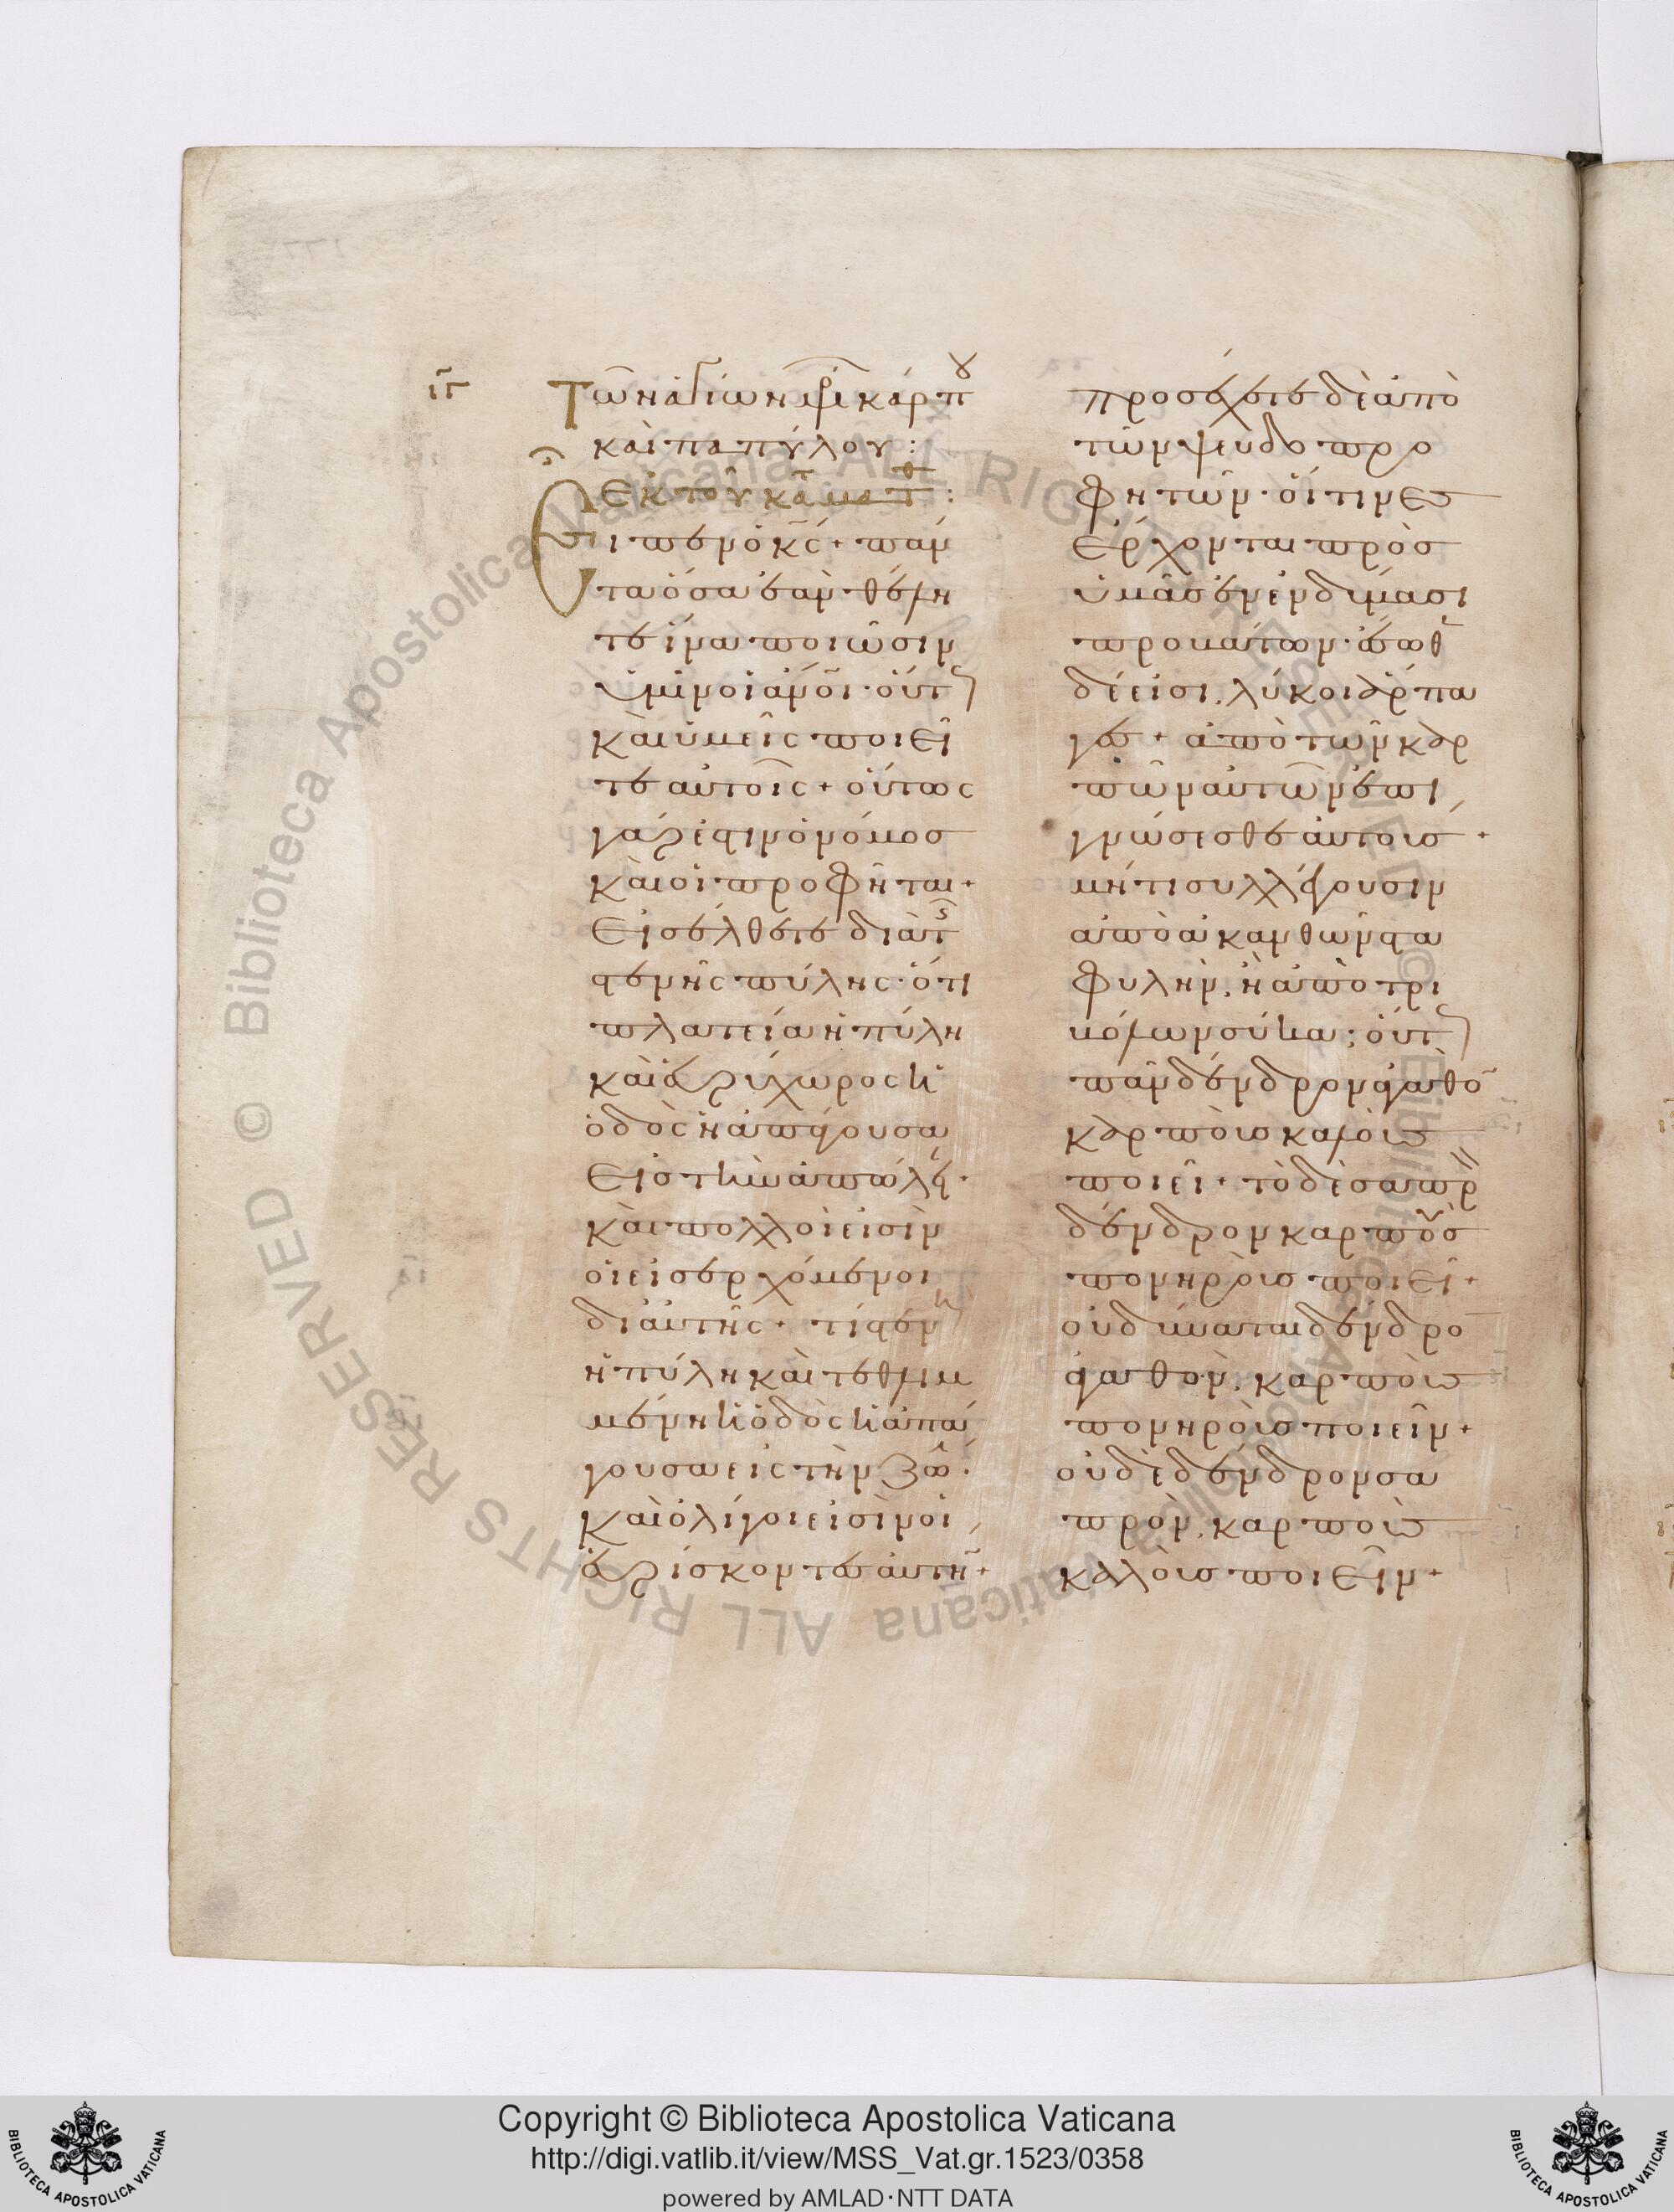 ιγ
Τῶν ἁγίων μρ κάρπου
καὶ παπύλου :
ἐκ τοῦ κατὰ ματθ :
Εἶπεν ὁ κς + πάν
τα ὅσα ἐὰν θέλη
τε ἵνα ποιῶσιν
ὑμῖν οἱ ἄνοι · οὕτ
καὶ ὑμεῖς ποιεῖ
τε αὐτοῖς + οὕτως
γάρ ἐστιν ὁ νόμος
καὶ οἱ προφῆται +
Εἰσέλθετε διὰ τ
στενῆς πύλης · ὅτι
πλατεία ἡ πύλη
καὶ εὐρύχωρος ἡ
ὁδὸς ἡ ἀπάγουσα
εἰς τὴν ἀπώλει ·
καὶ πολλοὶ εἰσὶν
οἱ εἰσερχόμενοι
δι' αὐτῆς + τί στενὴ
ἡ πύλη καὶ τεθλιμ
μένη ἡ ὁδὸς ἡ ἀπά
γουσα εἰς τὴν ζω ·
Καὶ ὀλίγοι εἰσὶν οἱ
εὑρίσκοντες αὐτή +
προσέχετε δὲ ἀπὸ
τῶν ψευδοπρο
φητῶν · οἵτινες
ἔρχονται πρὸς
ὑμᾶς ἐν ἐνδύμασι
προβάτων · ἔσωθ
δέ εἰσι, λύκοι ἅρπα
γες + ἀπὸ τῶν καρ
πῶν αὐτῶν ἐπι
γνώσεσθε αὐτοὺς +
μήτι συλλέγουσιν
ἀπὸ ἀκανθῶν στα
φυλὴν, ἢ ἀπὸ τρι
βόλων σῦκα ; οὕτ
πᾶν δένδρον ἀγαθὸ
καρποὺς καλοὺς
ποιεῖ + τὸ δὲ σαπρ
δένδρον καρποὺς
πονηροὺς ποιεῖ +
οὐ δύναται δένδρο
ἀγαθὸν, καρποὺς
πονηροὺς ποιεῖν +
οὐδὲ δένδρον σα
πρὸν, καρποὺς
καλοὺς ποιεῖν +
© Biblioteca Apostolica Vaticana ALL RIGHTS RESERVED
Copyright © Biblioteca Apostolica Vaticana
http://digi.vatlib.it/view/MSS_Vat.gr.1523/0358
powered by AMLAD·NTT DATA
BIBLIOTECA APOSTOLICA VATICANA
BIBLIOTECA APOSTOLICA VATICANA